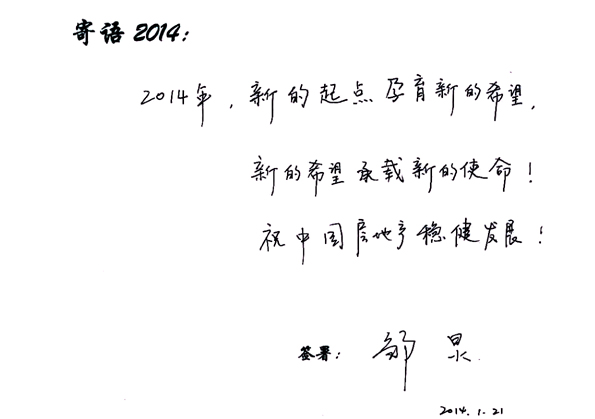 寄语 2014:
2014年，新的起点孕育新的希望，
新的希望承载新的使命！
祝中国房地产稳健发展！
签署： 邹 泉
2014.1.21